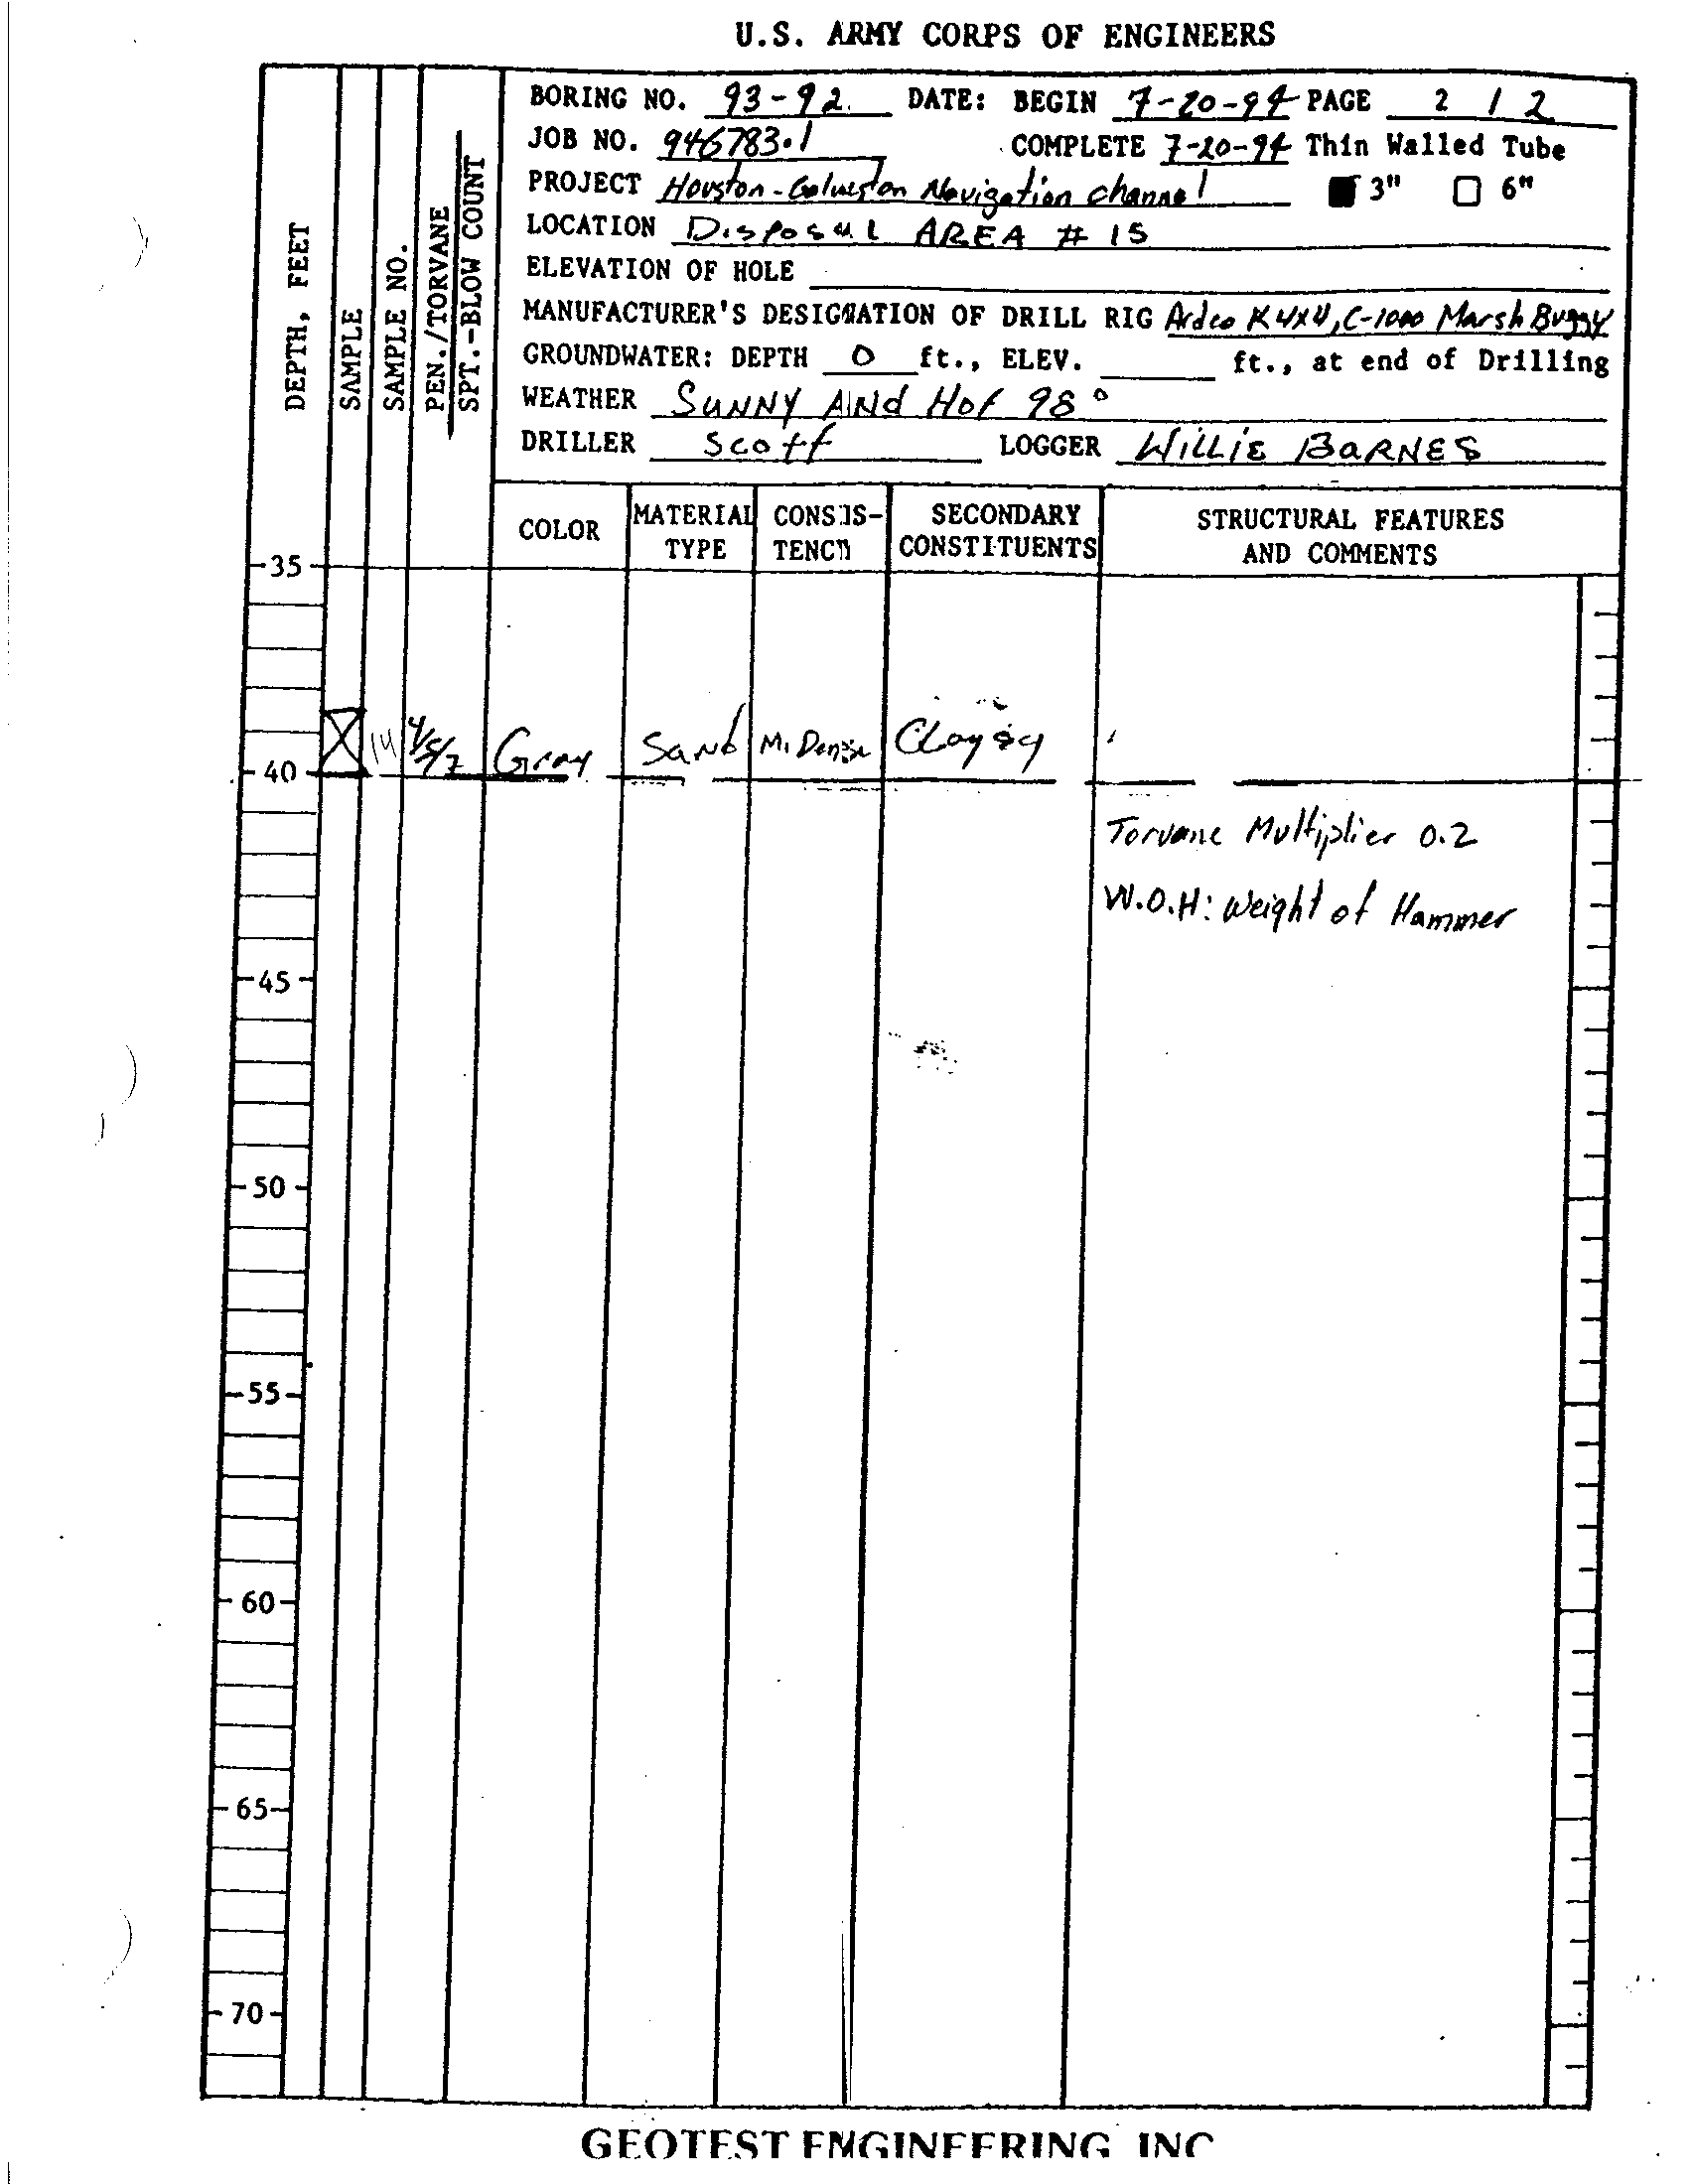 U.S. ARMY CORPS OF ENGINEERS
BORING NO. 93-92 DATE: BEGIN 7-20-94 PAGE 2 / 2
JOB NO. 946783.1 COMPLETE 7-20-94 Thin Walled Tube
PROJECT Houston-Galveston Navigation channel 3" 6"
LOCATION Disposal AREA # 15
ELEVATION OF HOLE
MANUFACTURER'S DESIGNATION OF DRILL RIG Ardco K 4X4, C-1000 Marsh Buggy
GROUNDWATER: DEPTH 0 ft., ELEV. ft., at end of Drilling
WEATHER SUNNY AND Hot 98°
DRILLER Scott LOGGER WILLIE BARNES
DEPTH, FEET
SAMPLE
SAMPLE NO.
PEN./TORVANE
SPT.-BLOW COUNT
COLOR
MATERIAL TYPE
CONSIS-TENCY
SECONDARY CONSTITUENTS
STRUCTURAL FEATURES AND COMMENTS
35
14 4/5/7 Gray Sand M. Dense Clayey
40
Torvane Multiplier 0.2
W.O.H: Weight of Hammer
45
50
55
60
65
70
GEOTEST ENGINEERING INC